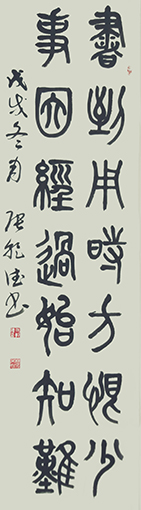 書到用時方恨少
事因經過始知難
戊戌冬月